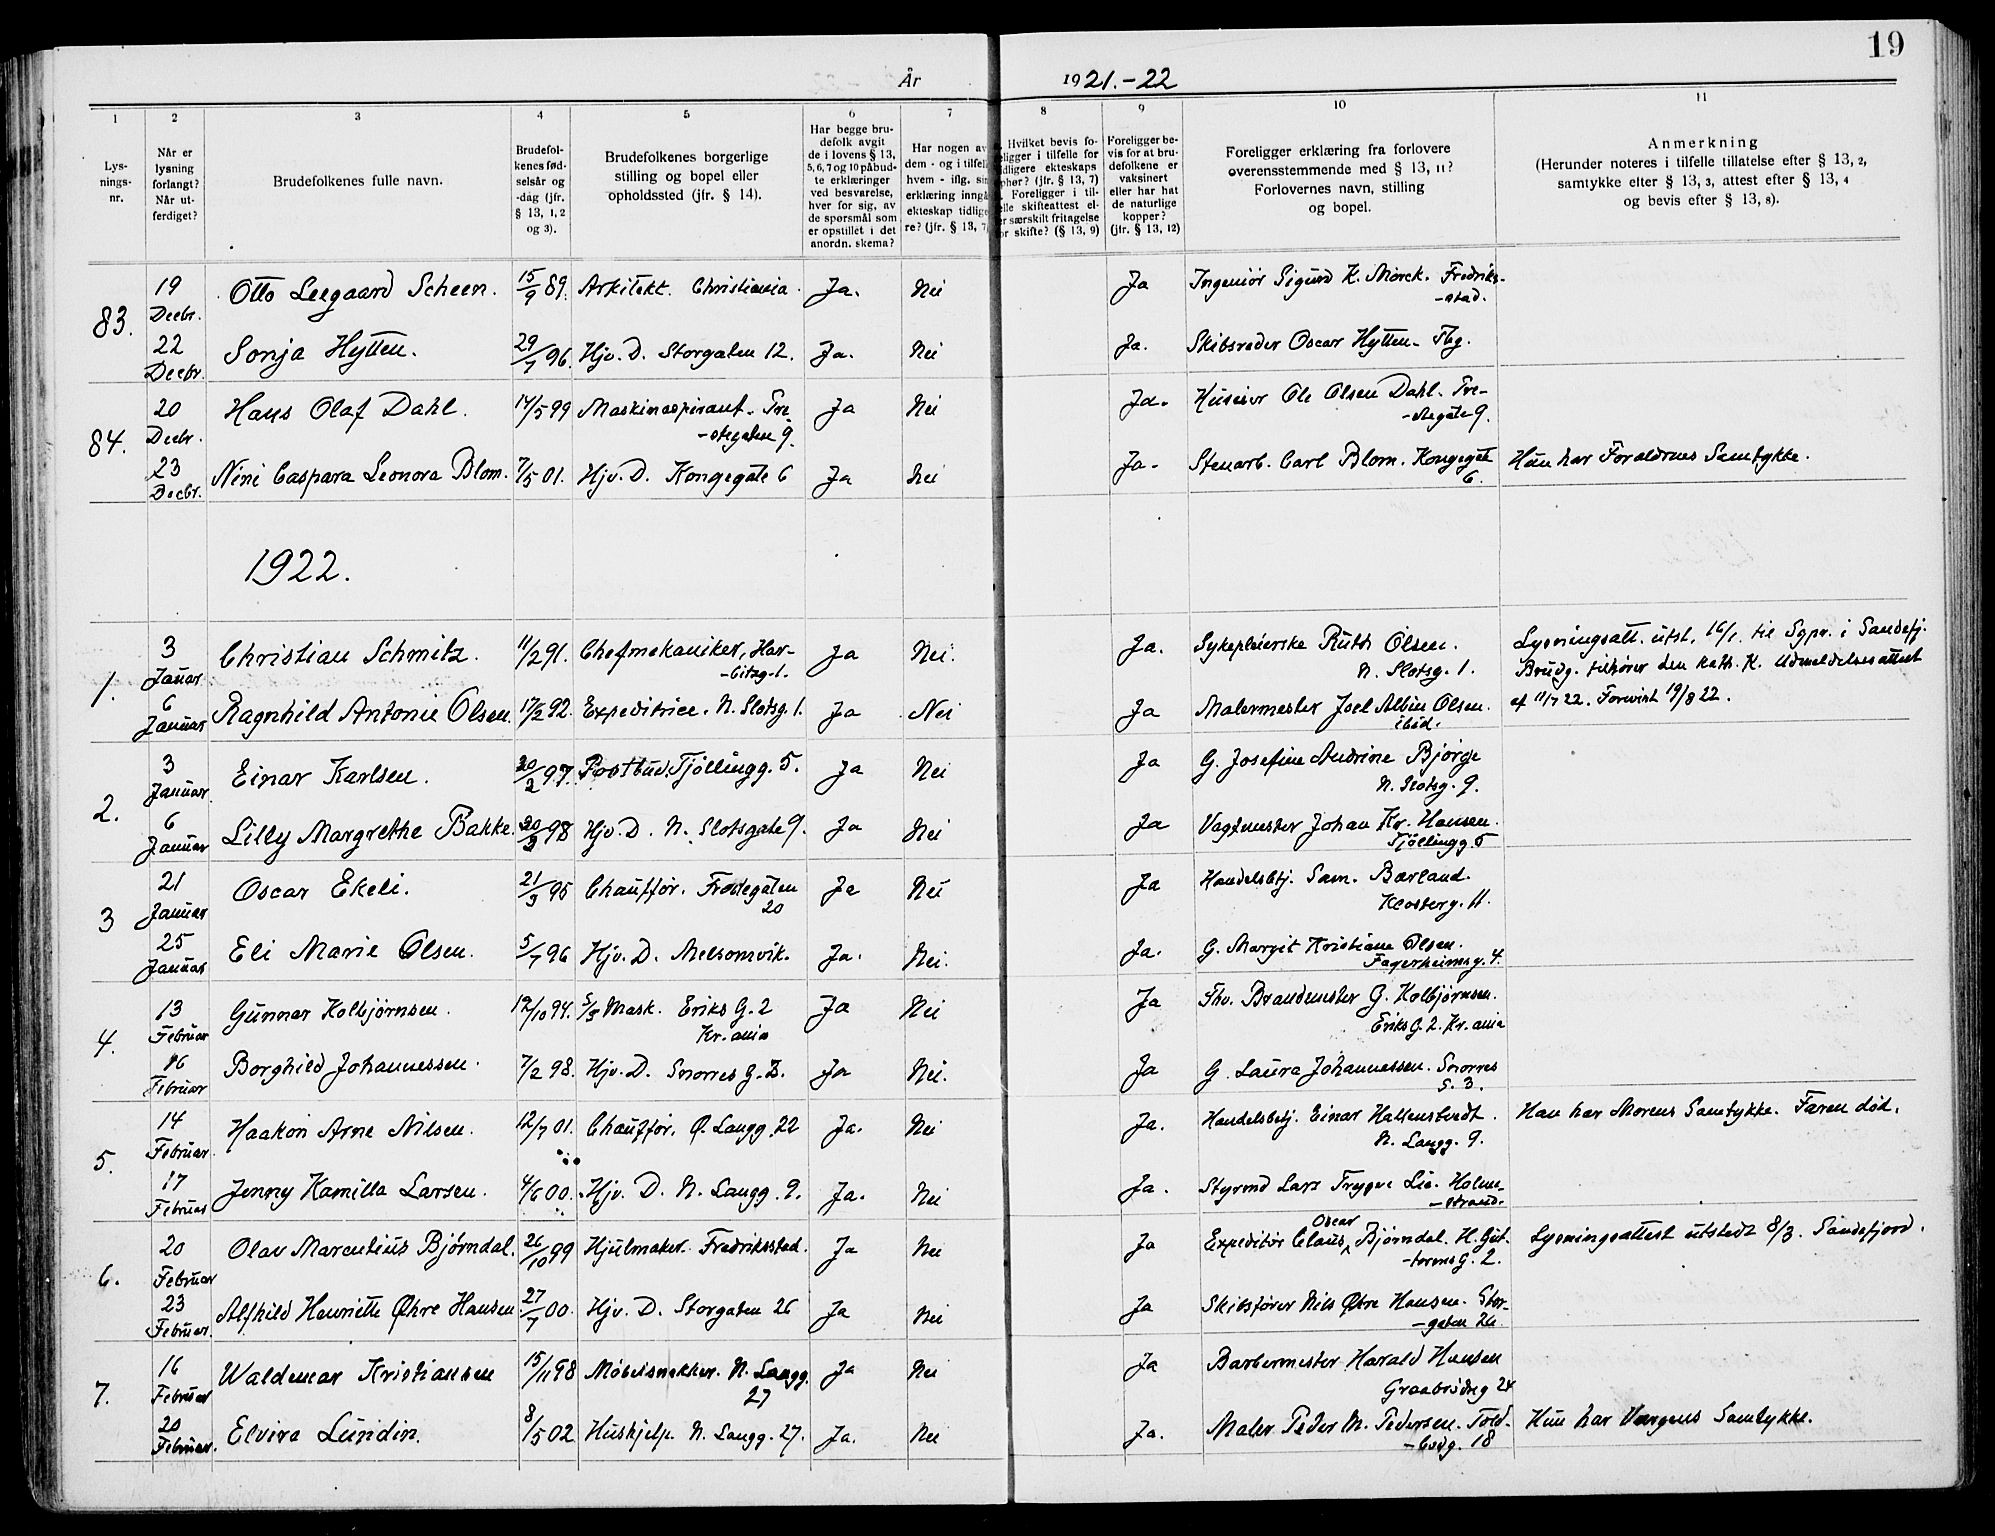 19
År 1921.-22
1 2 3 4 5 6 7 8 9 10 11
Lys-
nings-
nr.
Når er
lysning
forlangt?
Når ut-
ferdiget?
Brudefolkenes fulle navn.
Brudefol-
kenes fød-
selsår og
-dag (jfr.
§ 13, 1, 2
og 3).
Brudefolkenes borgerlige
stilling og bopel eller
opholdssted (jfr. § 14).
Har begge bru-
defolk avgit
de i lovens § 13,
5, 6, 7 og 10 påbud-
te erklæringer
ved besvarelse,
hver for sig, av
de spørsmål som
er opstillet i det
anordn. skema?
Har nogen av
dem - og i tilfel
hvem - iflg. si
erklæring inngå
ekteskap tidlige
re? (jfr. § 13, 7
Hvilket bevis fo-
eligger i tilfelle for
idligere ekteskaps
phør? (jfr. § 13, 7)
Foreligger i til-
elle skifteattest el-
er særskilt fritagelse
or skifte? (§ 13, 9)
Foreligger be-
vis for at bru-
defolkene er
vaksinert
eller har hat
de naturlige
kopper?
(jfr. § 13, 12)
Foreligger erklæring fra forlovere
overensstemmende med § 13, 11?
Forlovernes navn, stilling
og bopel.
Anmerkning
(Herunder noteres i tilfelle tillatelse efter § 13, 2,
samtykke efter § 13, 3, attest efter § 13, 4
og bevis efter § 13, 8).
83. 19 Decbr. Otto Leegaard Scheen. 15/9 89. Arkitekt. Christiania. Ja. Nei Ja Ingeniør Sigurd K. Mørck. Fredriks-
-stad.
22 Decbr. Sonja Hytten. 29/7 96. Hjv. D. Storgaten 12. Ja. Nei Ja. Skibsreder Oscar Hytten. Tbg.
84. 20 Decbr. Hans Olaf Dahl. 14/5 99 Maskinaspirant. Træ- Ja Nei Ja. Huseier Ole Olsen Dahl. Træ-
-stegaten 9. -stegate 9.
23 Decbr. Nini Caspara Leonora Blom. 7/5 01. Hjv. D. Kongegate 6 Ja Nei Ja. Stenarb. Carl Blom. Kongegate Hun har Forældrenes Samtykke.
6.
1922.
1. 3 Januar Christian Schmitz. 11/2 91. Chefmekaniker, Har- Ja Nei. Ja. Sykepleierske Ruth Olsen. Lysningsatt. utst. 16/1. til Sgpr. i Sandefj.
-bitzg. 1. N. Slotsg. 1. Brudg. tilhører den kath. K. Udmeldelsesattest
6 Januar Ragnhild Antonie Olsen. 17/2 92. Expeditrice. N. Slotsg. 1. Ja Nei Ja Malermester Joel Albin Olsen. af 11/7 22. Forevist 19/8 22.
ibid.
2. 3 Januar Einar Karlsen. 30/2 97. Postbud. Tjøllingg. 5. Ja Nei Ja G. Josefine Andrine Bjørge
N. Slotsg. 9.
6 Januar Lilly Margrethe Bakke. 20/3 98 Hjv. D. N. Slotsgate 9. Ja Nei Ja Vagtmester Johan Kr. Hansen.
Tjøllingg. 5
3 21 Januar Oscar Ekeli. 21/3 95 Chauffør. Frodegaten Ja Nei Ja Handelsbetj. Sam. Barland.
20 Klosterg. 11.
25 Januar Eli Marie Olsen. 5/7 96 Hjv. D. Melsomvik. Ja. Nei. Ja. G. Margit Kristiane Olsen.
Fagerheimsg. 4.
4. 13 Februar Gunnar Kolbjørnsen. 12/10 94. 5/3 Mask. Eriks G. 2 Ja Nei Ja Fhv. Brandmester G. Kolbjørnsen.
Kr.ania Eriks G. 2. Kr.ania
16 Februar Borghild Johannessen. 7/2 98. Hjv. D. Snorres G. 3. Ja Nei. Ja G. Laura Johannessen. Snorres
G. 3.
5. 14 Februar Haakon Arne Nilsen. 12/7 01. Chauffør. Ø. Langg. 22 Ja. Nei Ja. Handelsbetj. Einar Hallenstvedt. Han har Morens Samtykke. Faren død.
N. Langg. 9.
17 Februar Jenny Kamilla Larsen. 4/6 00. Hjv. D. N. Langg. 9. Ja. Nei Ja. Styrmd Lars Trygve Lie. Holme-
-strand.
6. 20 Februar Olav Marentius Bjørndal. 26/10 99 Hjulmaker. Fredriksstad. Ja Nei Ja Expeditør Claus Oscar Bjørndal. H. Gut- Lysningsattest utstedt 8/3. Sandefjord.
-torms G. 2.
23 Februar. Alfhild Henriette Øhre Hansen. 27/7 00. Hjv. D. Storgaten 26 Ja Nei Ja Skibsfører Nils Øhre Hansen. Stor-
-gaten 26.
7. 16 Februar Waldemar Kristiansen 15/11 98 Møbelsnekker. N. Langg. Ja Nei Ja Barbermester Harald Hansen
27 Graabrødreg 24
20 Februar. Elvira Lundin. 8/5 02 Hushjelp. N. Langg. 27. Ja. Nei Ja. Maler Peder M. Pedersen. Told- Hun har Værgens Samtykke.
-bodg. 18